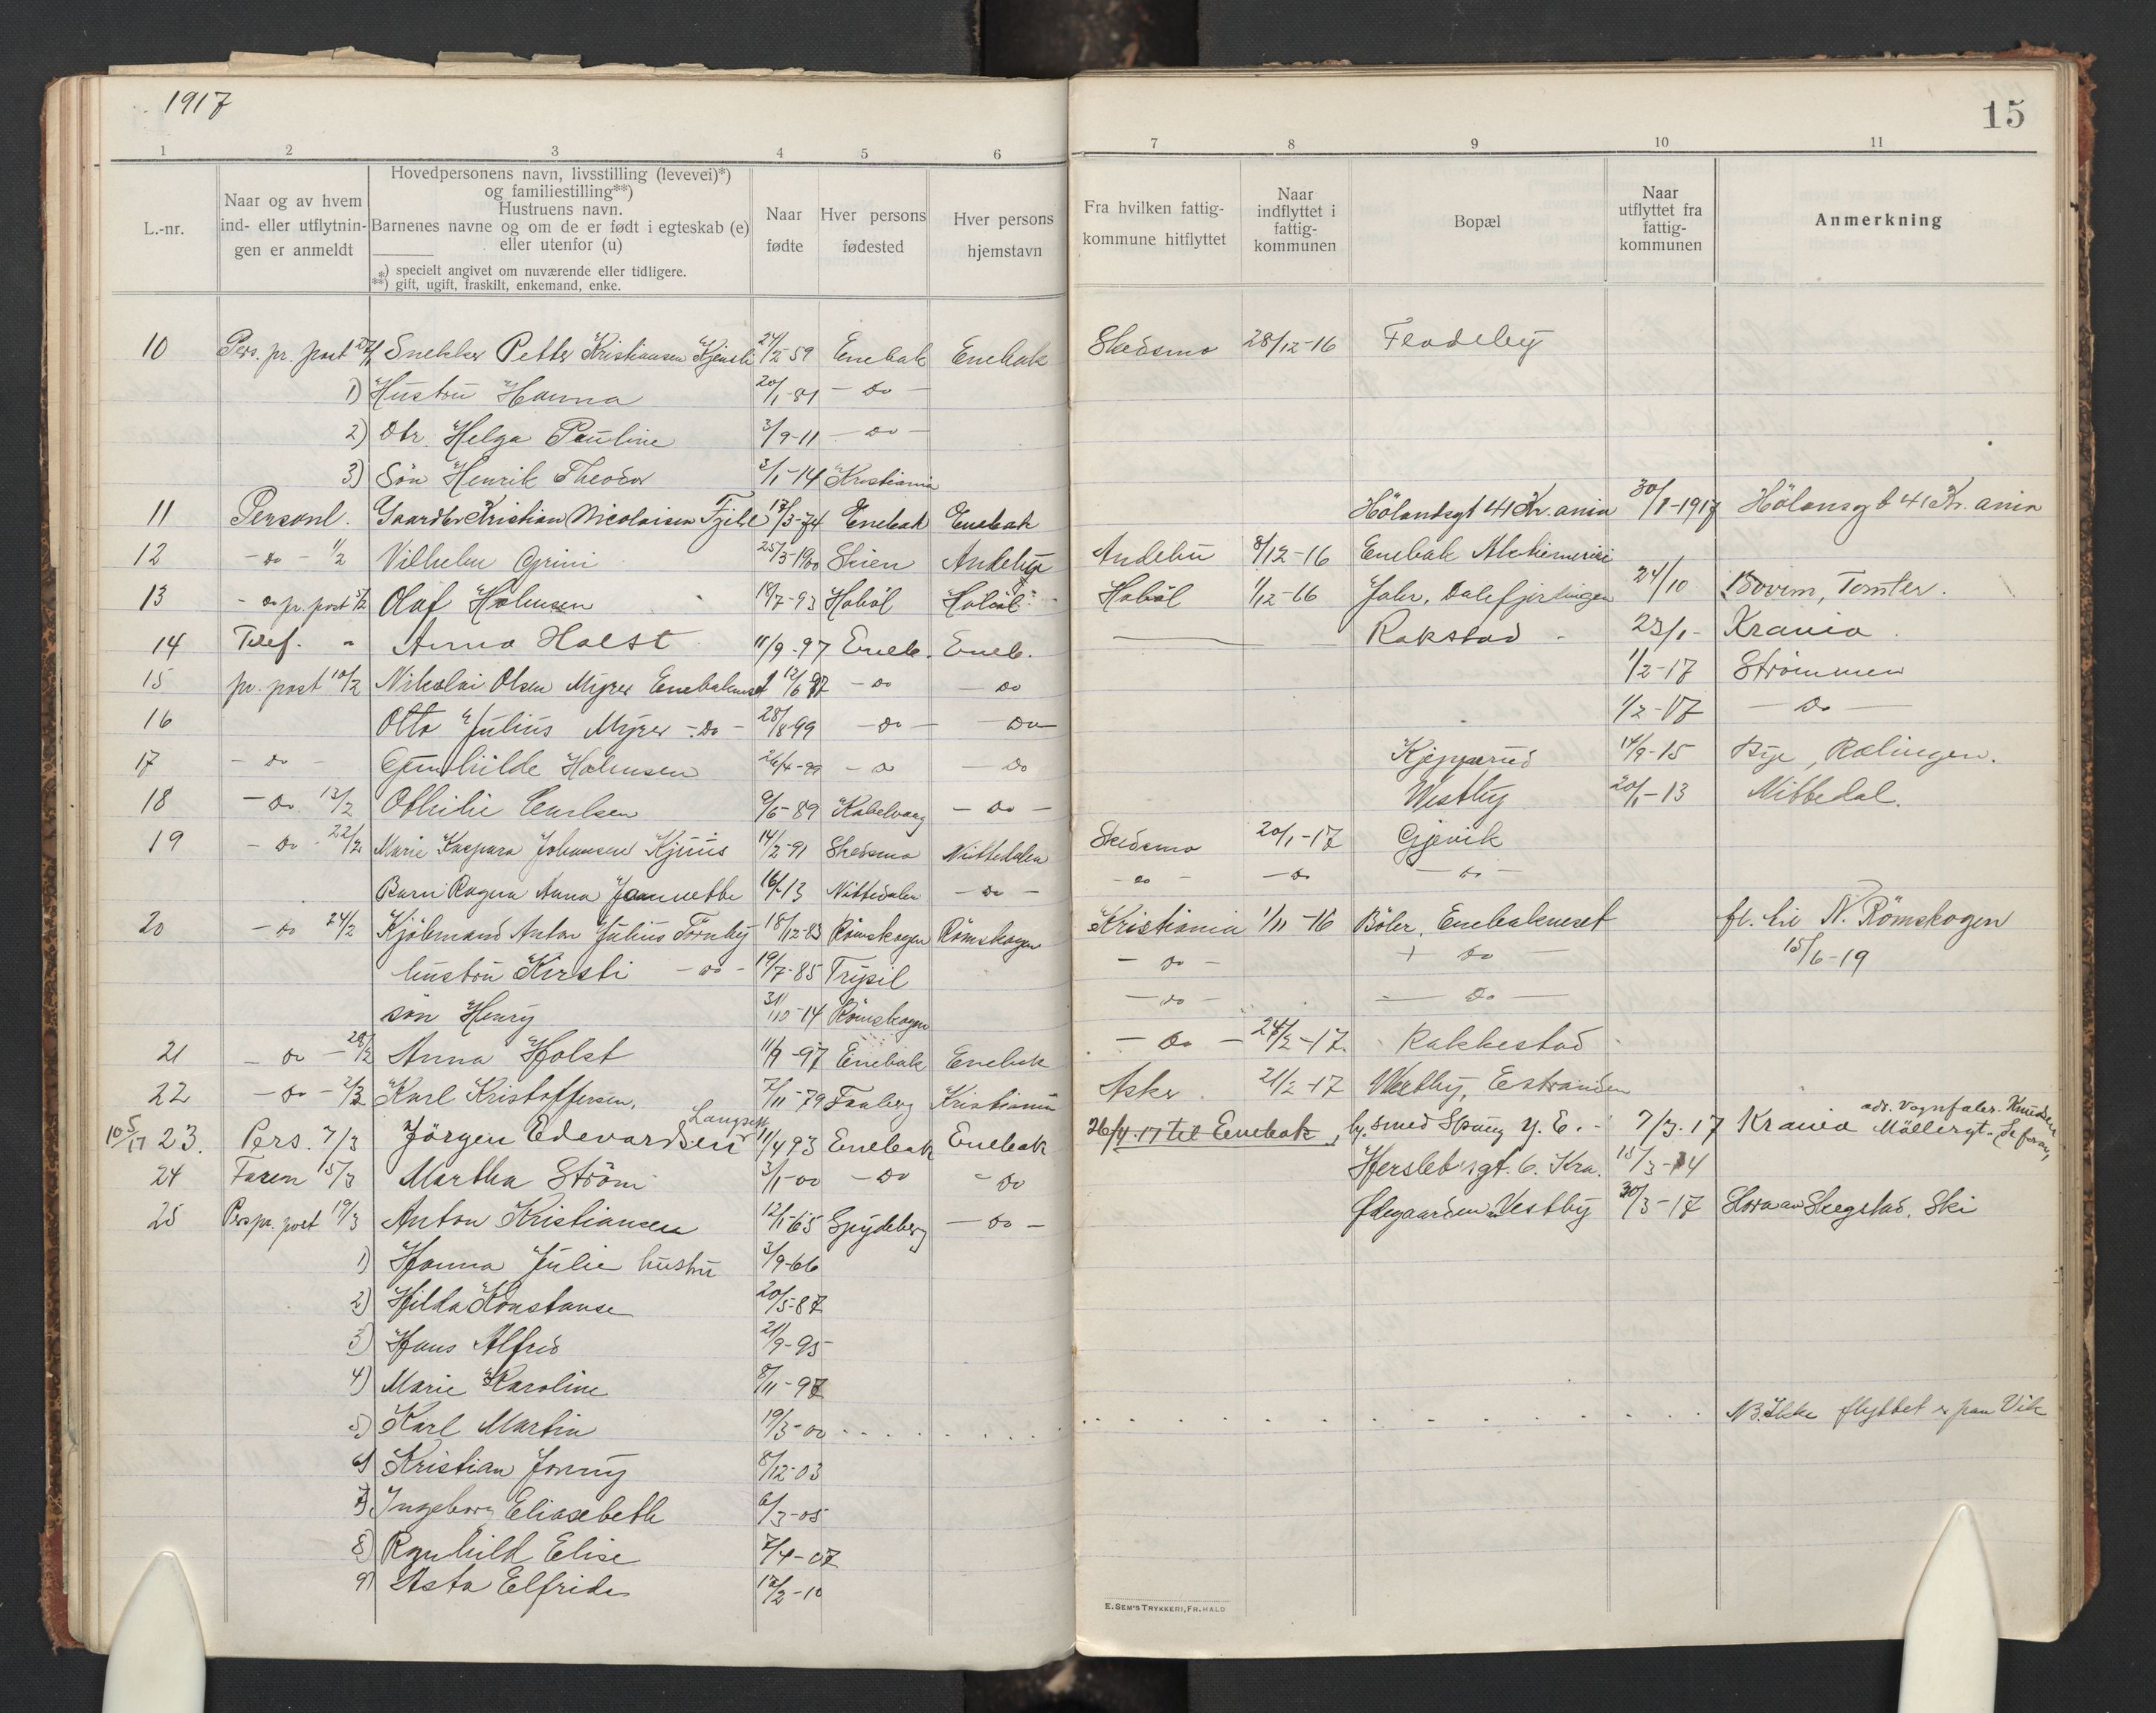 1917
15
1 2 3 4 5 6 7 8 9 10 11
L.-nr.
Naar og av hvem
ind- eller utflytnin-
gen er anmeldt
Hovedpersonens navn, livsstilling (levevei)*)
og familiestilling**)
Hustruens navn.
Barnenes navne og om de er født i egteskab (e)
eller utenfor (u)
*) specielt angivet om nuværende eller tidligere.
**) gift, ugift, fraskilt, enkemand, enke.
Naar
fødte
Hver persons
fødested
Hver persons
hjemstavn
Fra hvilken fattig-
kommune hitflyttet
Naar
indflyttet i
fattig-
kommunen
Bopæl
Naar
utflyttet fra
fattig-
kommunen
Anmerkning
10 Pers. pr. post Snekker Petter Kristiansen 24/2-59 Enebak Enebak Skedsmo 28/12-16 Fladeby
1) Hustru Hanna 20/1-81 - do -
2) Dtr. Helga Pauline 3/9-11 - do -
3) Sön Henrik Theodor 2/1-14 Kristiania
11 Personl. Gaardbr Kristian Nicolaisen Fjeld 17/3-74 Enebak Enebak Hölandsgt 41 Kr.ania 30/1-1917 Hölansgt 41 Kr.ania
12 - do - 1/2 Vilhelm Grini 25/3-1900 Skien Andebu Andebu 8/12-16 Enebak Meieri
13 - do pr. post 5/2 Olaf Halmsen 18/7-93 Haböl Haböl Haböl 1/12-16 Jahr, Dalefjerdingen 24/10 Bovim, Tomter.
14 Telef. " Anna Holst 11/9-97 Eneb. Eneb. Rakstad - 23/1- Krania.
15 pr. post 10/2 Nikolai Olsen Myrer Enebakneset 12/6 97 - do - do 1/2-17 Strömmen
16 Otto Julius Myrer - do - 28/8-99 - do - - do - 1/2-17 - do -
17 - do - Gunhilde Halmsen 26/4-99 - do - do Kjepperud 14/9-15 Bye, Rælingen.
18 - do 13/2 Othilie Carlsen 9/6-89 Kabelvaag - do - Westby 20/1-13 Nittedal.
19 - do - 22/2 Marie Kaspara Johansen Kjuus 14/2-91 Skedsmo Nittedalen Skedsmo 20/1-17 Gjevik
Barn Ragna Anna Jeannette 16/1-13 Nittedalen - do - - do - - do - do -
20 - do 24/2 Kjöbmand Anton Julius Törnby 18/12-83 Römskogen Römskogen Kristiania 1/11-16 Böler, Enebakneset fl. til N. Römskogen
hustru Kirsti - do - 19/7-85 Trysil - do - - do - 15/6-19
sön Henry 31/10-14 Römskogen - do - - do -
21 - do - 28/2 Anna Holst 11/9-97 Enebak Enebak - do - 24/2-17. Rakkestad
22 - do - 2/3 Karl Kristoffersen. 7/11-79 Faaberg Kristiania Asker 21/2-17 Westby, Estranden
10/5 17 23. Pers. 7/3 Jörgen Edevardsen 11/4 93 Enebak Enebak 26/4-17 til Enebak, by. smed Spang Y.E. - 7/3-17 Krania adr. Vognfabr. Knudsen Möllergt.
24 Faren 15/3 Martha Ström 3/1-00 - do - do Herslebsgt. 6. Kra. 15/3-14
25 Pers pr. post 19/3 Anton Kristiansen 12/1-65 Spydeberg - do - Ødegaarden Vestby 30/3-17 Skegstad, Ski
1) Hanna Julie hustru 3/9-66
2) Hilda Konstanse 20/5-87
3) Hans Alfred 21/9-95
4) Marie Karoline 8/11-97
5) Karl Martin 19/3-00 . . . . . . . . NB. Ikke flyttet er paa Vik
6) Kristian Jonny 8/12-03
7) Ingeborg Eliasebeth 6/3-05
8) Ragnhild Elise 7/4-07
9) Asta Elfride 12/2-10
E. SEM'S TRYKKERI, FR.HALD